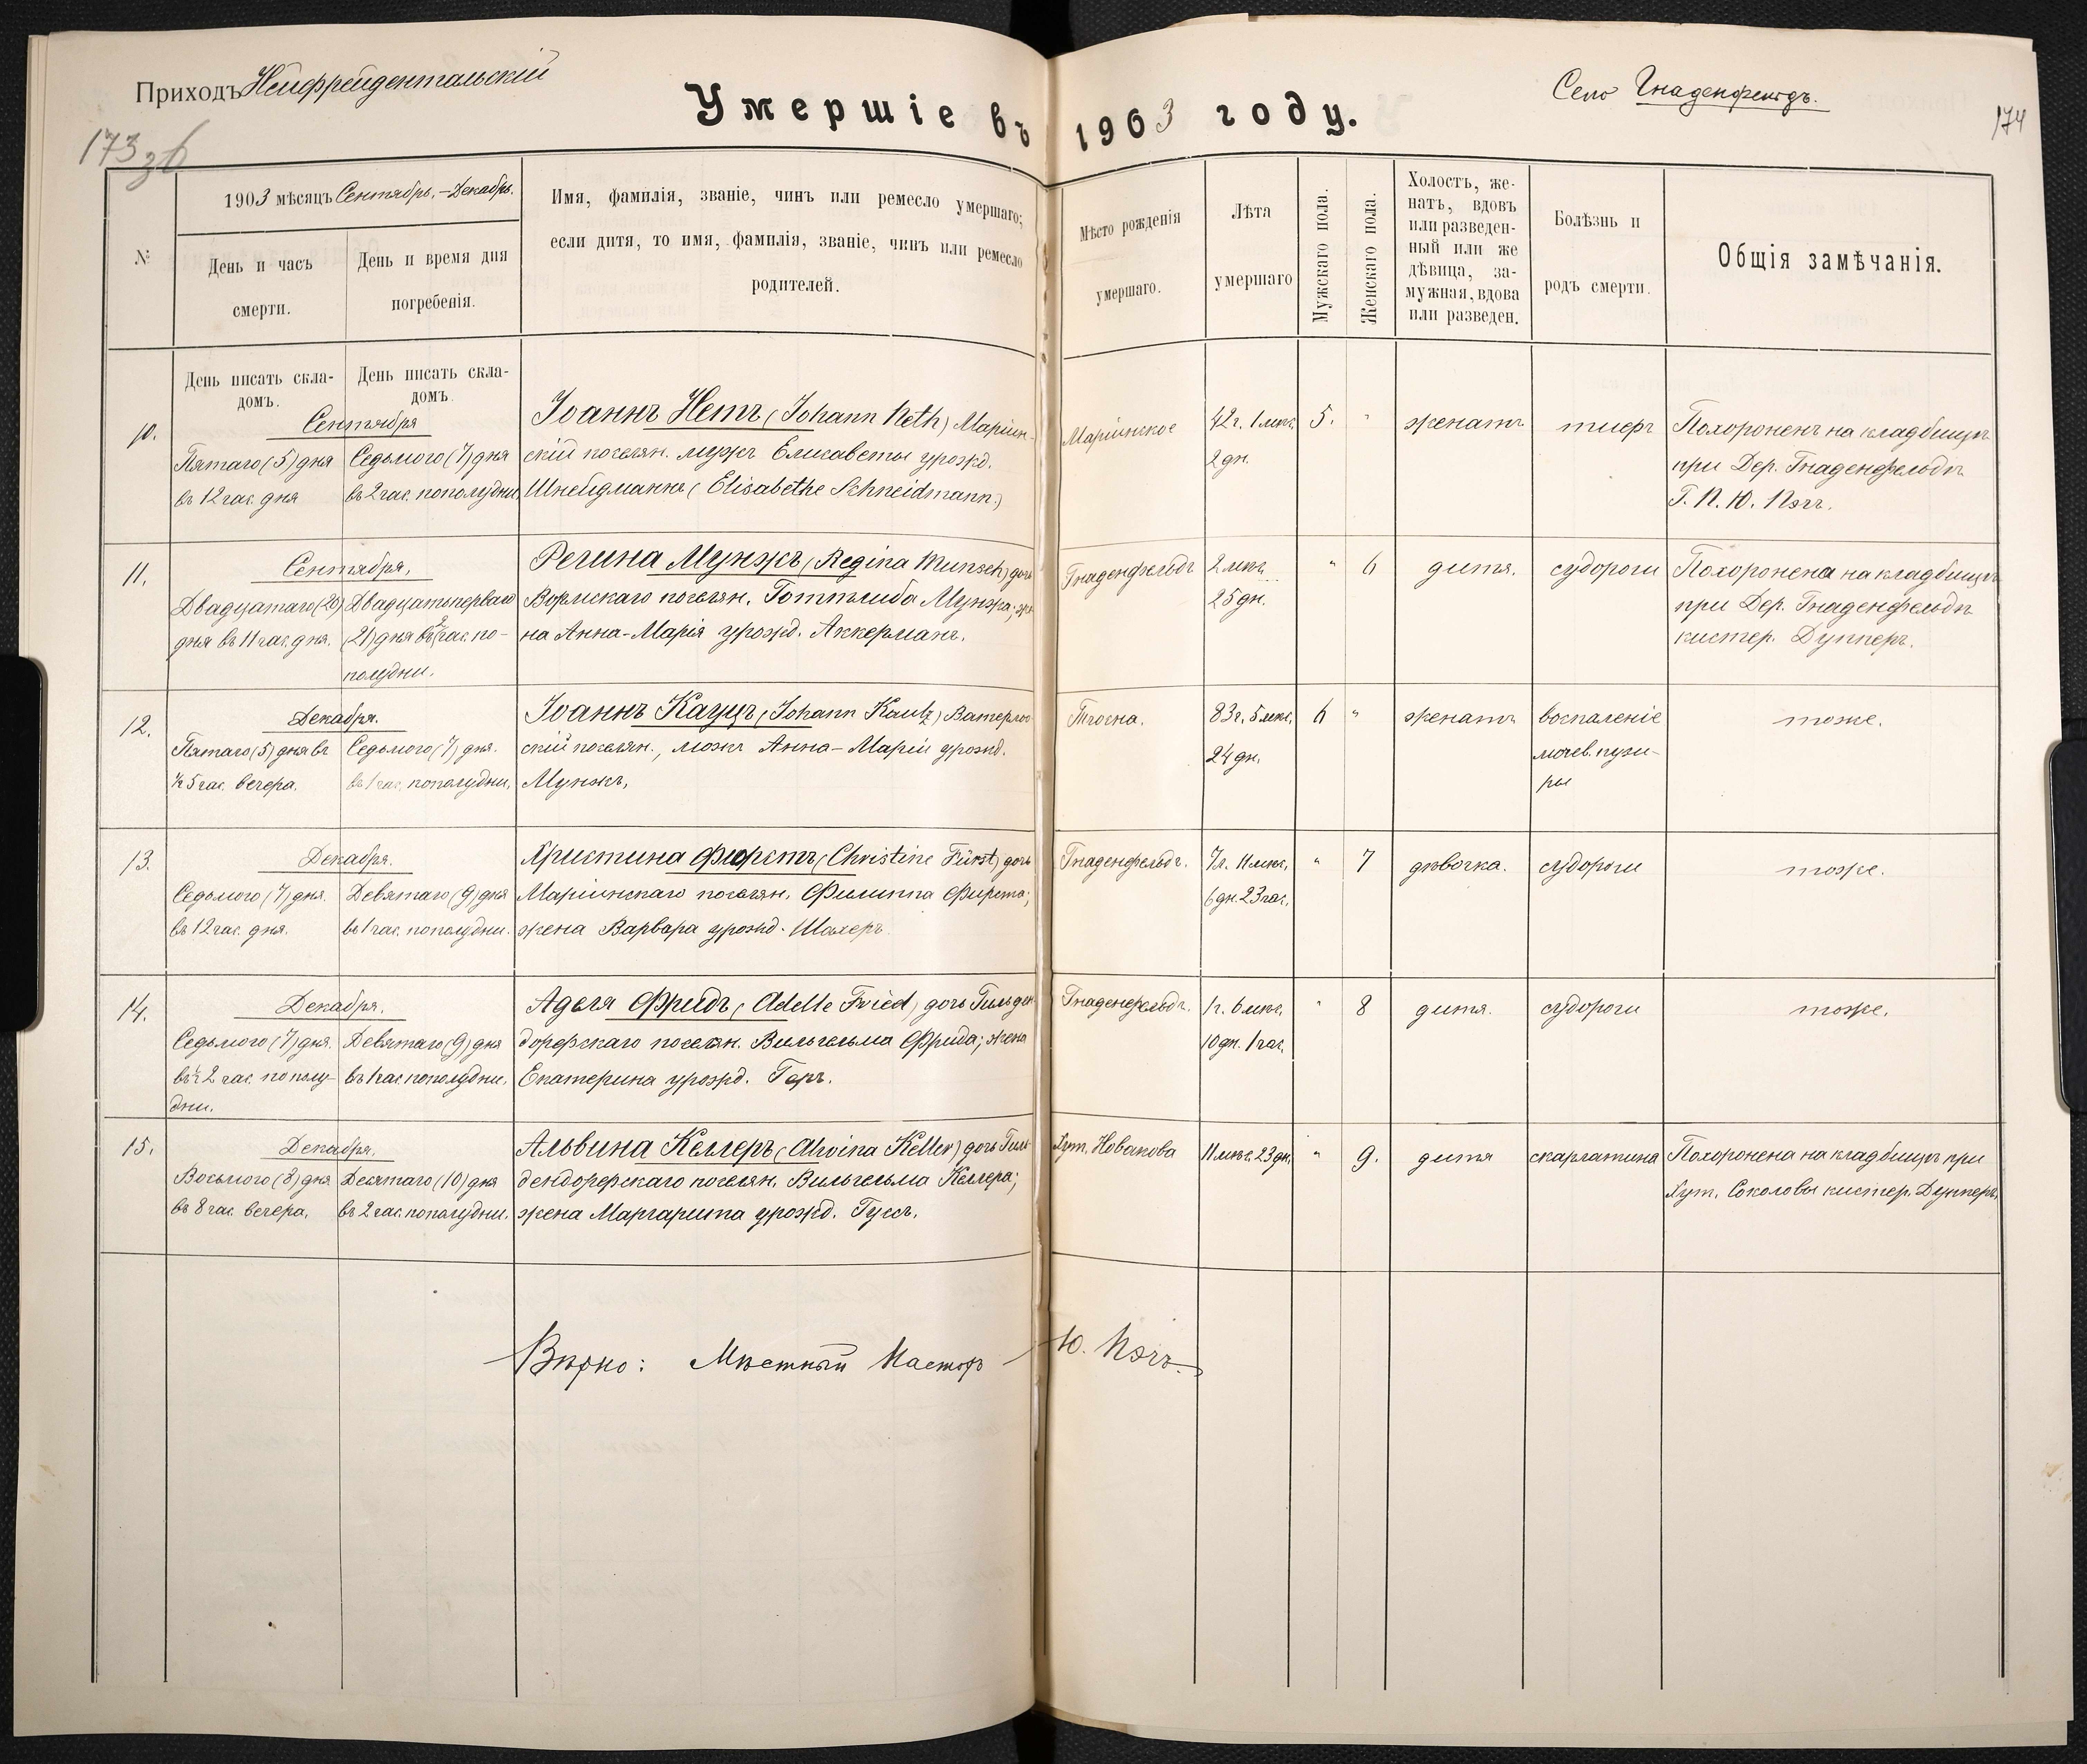 Приходъ Нейфрейдентальскій
Умершіе въ 1903 году.
Село Гнаденфельдъ.
173 зб
174
№
1903 мѣсяцъ Сентябрь,-Декабрь.
День и часъ
смерти.
День и время дня
погребенія.
Имя, фамилія, званіе, чинъ или ремесло умершаго;
если дитя, то имя, фамилія, званіе, чинъ или ремесло
родителей.
Мѣсто рожденія
умершаго.
Лѣта
умершаго
Мужскаго пола.
Женскаго пола.
Холостъ, же-
натъ, вдовъ
или разведен-
ный или же
дѣвица, за-
мужная, вдова
или разведен.
Болѣзнь и
родъ смерти.
Общія замѣчанія.
День писать скла-
домъ.
День писать скла-
домъ.
10.
Сентября
Пятаго (5) дня
въ 12 час. дня
Седьмого (7) дня
въ 2 час. пополудни.
Іоаннъ Нетъ (Johann Neth) Маріин-
скій поселян. мужъ Елисаветы урожд.
Шнейдманнъ (Elisabethe Schneidmann.)
Маріинское
42 г. 1 мѣс.
2 дн.
5.
"
женатъ
тифъ
Похороненъ на кладбищѣ
при Дер. Гнаденфельдѣ
Г. П. Ю. Пэчъ.
11.
Сентября,
Двадцатаго (20)
дня въ 11 час. дня.
Двадцатоперваго
(21) дня въ 2 час. по-
полудни.
Регина Мунжъ (Regina Munsch) дочь
Вормскаго поселян. Готтлиба Мунжа; же-
на Анна-Марія урожд. Аккерманъ.
Гнаденфельдъ
2 мѣс.
25 дн.
"
6
дитя.
судороги
Похоронена на кладбищѣ
при Дер. Гнаденфельдѣ
кистер. Дупперъ.
12.
Декабря.
Пятаго (5) дня въ
½ 5 час. вечера.
Седьмого (7) дня.
въ 1 час. пополудни.
Іоаннъ Кауцъ (Johann Kautz) Ватерлоо
скій поселян., можъ Анна-Маріи урожд.
Мунжъ.
83 г. 5 мѣс.
24 дн.
6
"
женатъ
воспаленіе
мочев. пузы-
ры
тоже.
13.
Декабря.
Седьмого (7) дня.
въ 12 час. дня.
Девятаго (9) дня
въ 1 час. пополудни.
Христина Фюрстъ (Christine Fürst) дочь
Маріинскаго поселян. Филиппа Фирста;
жена Варвара урожд. Шахеръ.
Гнаденфельдъ.
7 г. 11 мѣс.
6 дн. 23 час.
"
7
дѣвочка.
судороги
тоже.
14.
Декабря.
Седьмого (7) дня.
въ ½ 2 час. пополу-
дни.
Девятаго (9) дня
въ 1 час. пополудни.
Аделя Фридъ (Adelle Fried) дочь Гильден
дорфскаго поселян. Вильгельма Фрида; жена
Екатерина урожд. Геръ.
Гнаденфельдъ.
1 г. 6 мѣс.
10 дн. 1 час.
"
8
дитя.
судороги
тоже.
15.
Декабря.
Восьмого (8) дня
въ 8 час. вечера.
Десятаго (10) дня
въ 2 час. пополудни.
Альвина Келлеръ (Alwina Keller) дочь Гиль-
дендорфскаго поселян. Вильгельма Келлера;
жена Маргарита урожд. Гуссъ.
Хут. Новакова
11 мѣс. 23 дн.
"
9.
дитя
скарлатина
Похоронена на кладбищѣ при
Хут. Соколовы кистер. Дупперъ.
Вѣрно: Мѣстный Пасторъ Ю. Пэчъ.